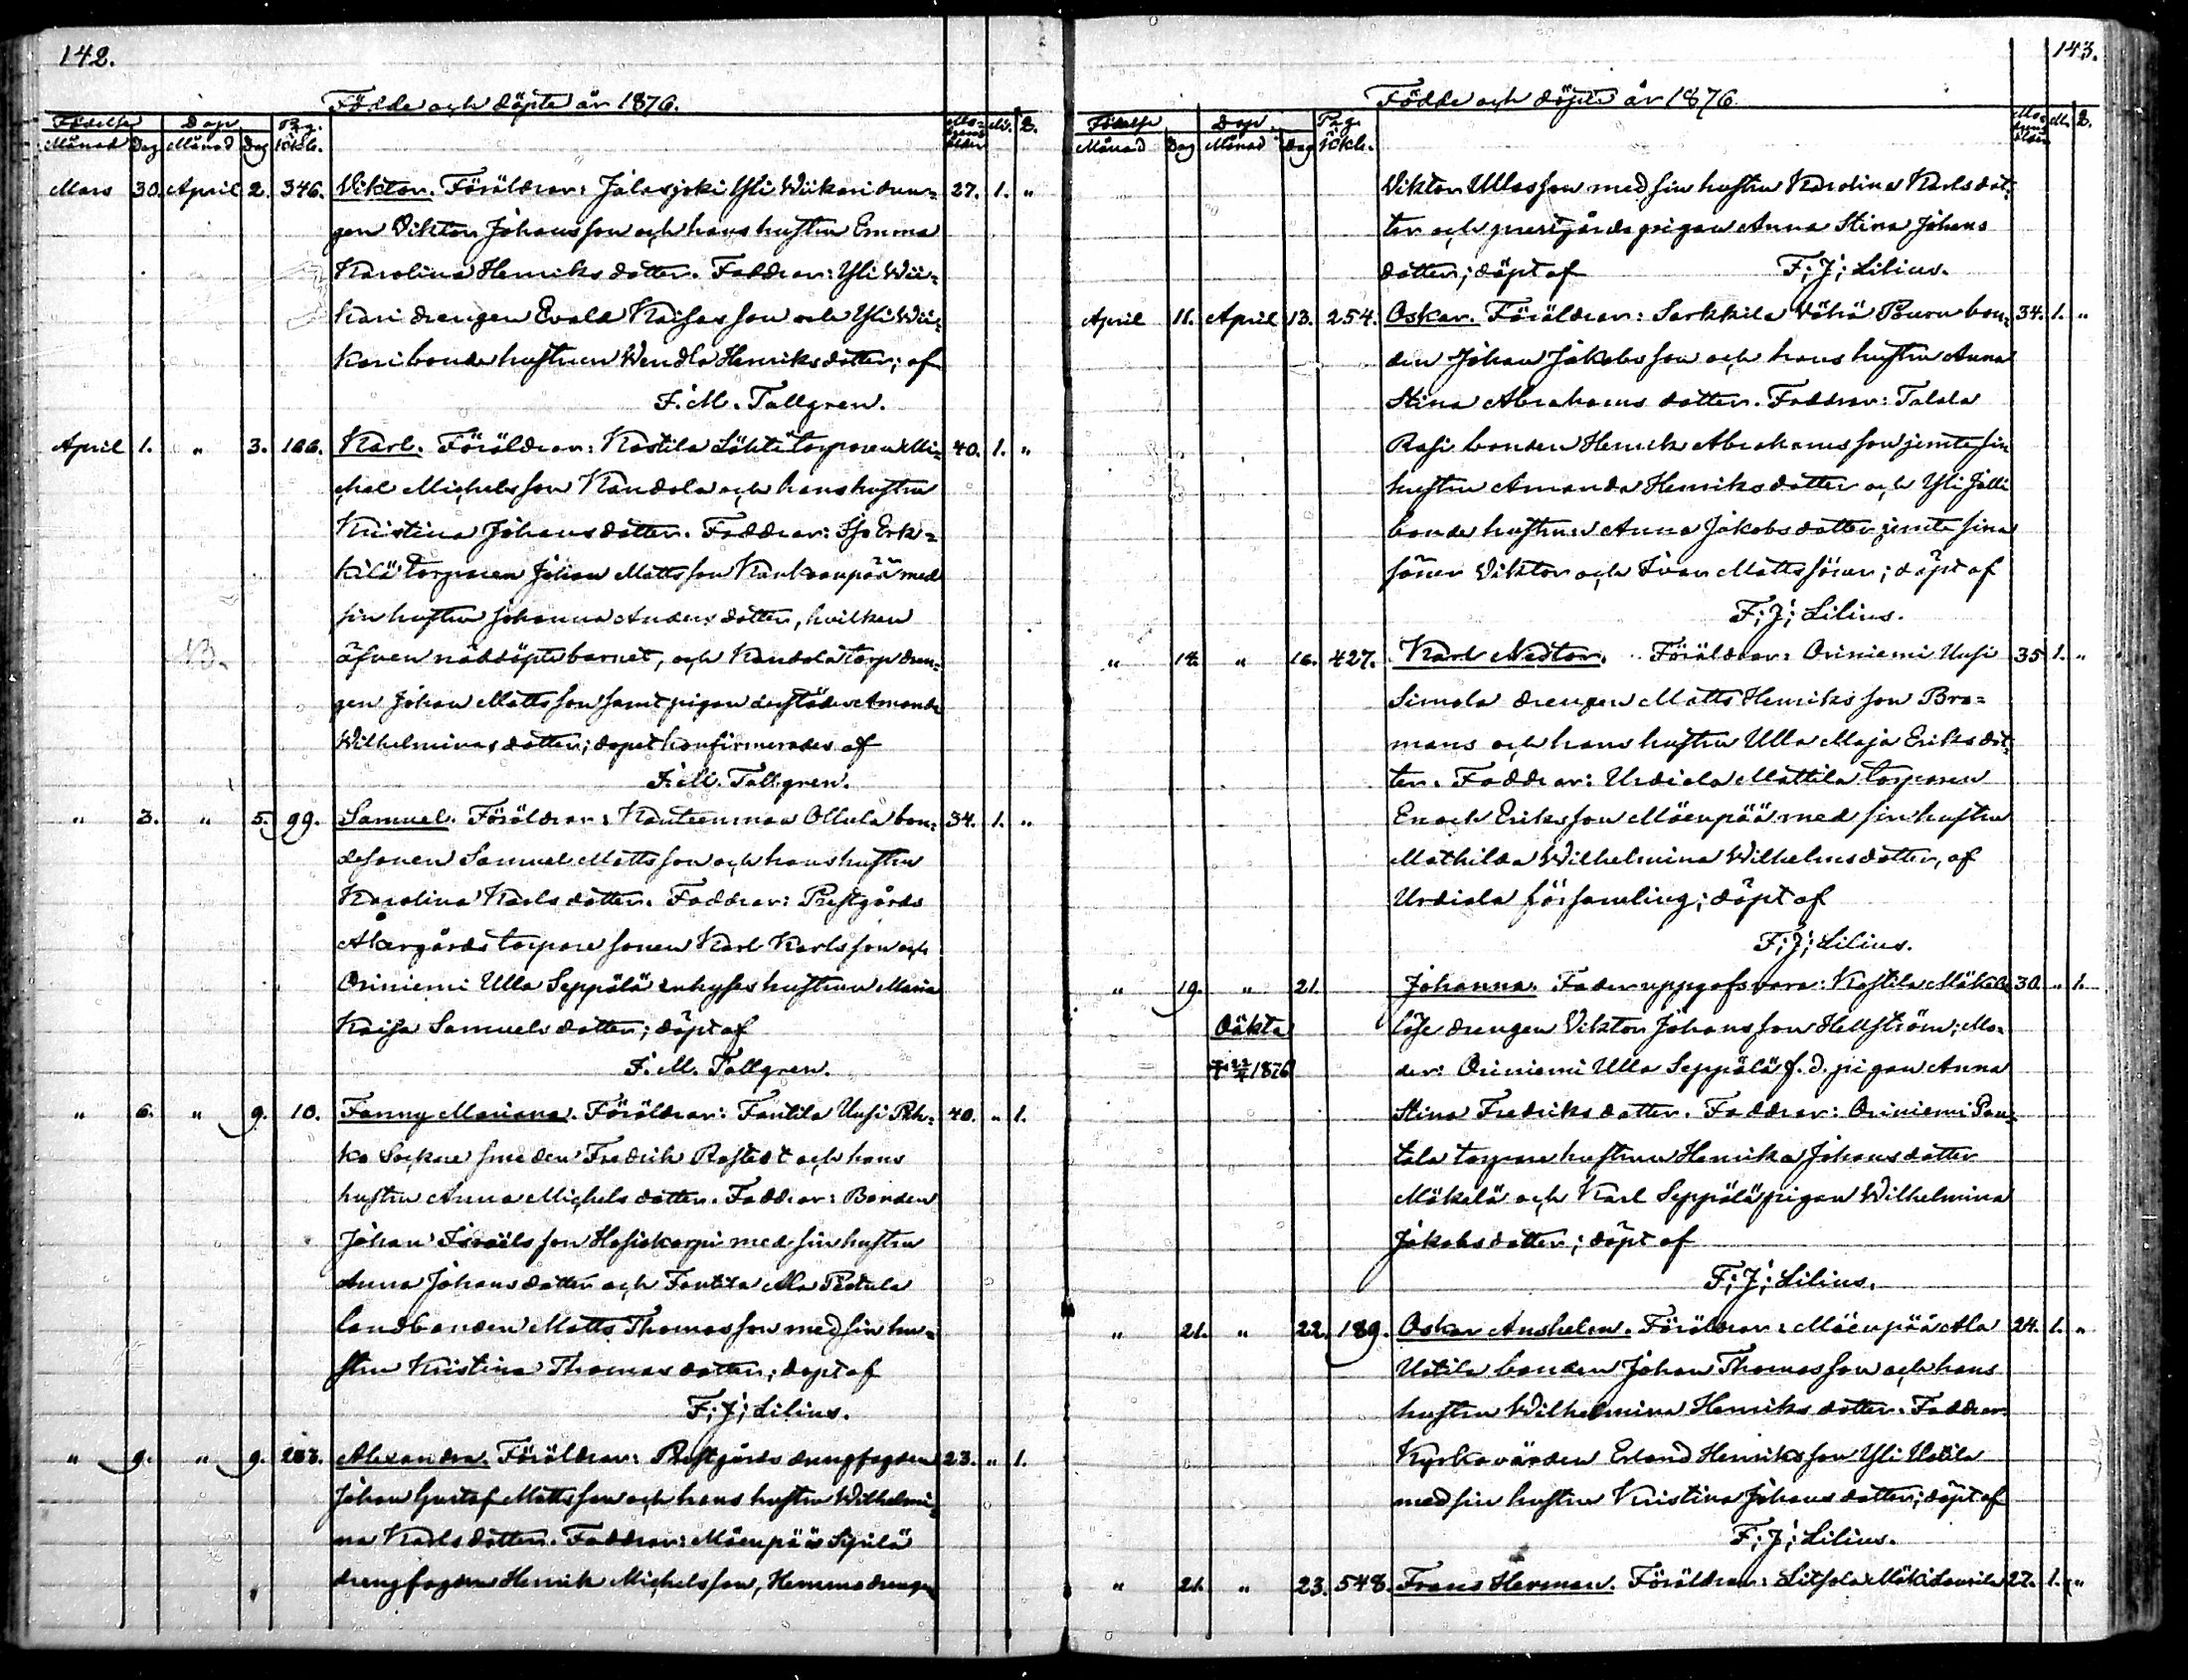 142.
Födde och döpte år 1876.
Födelse Dop Pag. Moderns ålder M. Q.
Månad Dag Månad Dag i Kkb.
Mars 30. April 2. 346. Viktor. Föräldrar: Jalasjoki Yli Wiikari dren= 27. 1. "
gen Viktor Johansson och hans hustru Emma
Karolina Henriksdotter. Faddrar: Yli Wii=
kari drengen Evald Kaisasson och Yli Wii=
kari bondehustrun Wendla Henriksdotter; af
F. M. Tallgren.
April 1. " 3. 166. Karl. Föräldrar: Kostila Lähti torparen Mi= 40. 1. "
chel Michelsson Kandola och hans hustru
Kristina Johansdotter. Faddrar: Iso Erk=
kilä torparen Johan Mattsson Kankaanpää med
sin hustru Johanna Andersdotter, hvilken
NB. äfven nöddöpte barnet, och Kandola torp dren=
gen Johan Mattsson samt pigan derstädes Amanda
Wilhelminasdotter; dopet konfirmerades af
F. M. Tallgren.
" 3. " 5. 99. Samuel. Föräldrar: Kauteenmaa Ollula bon= 34. 1. "
desonen Samuel Mattsson och hans hustru
Karolina Karlsdotter. Faddrar: Prestgårds
Åkergårds torpare sonen Karl Karlsson och
Oriniemi Ulla Seppälä inhyses hustrun Maria
Kaisa Samuelsdotter; döpt af
F. M. Tallgren.
" 6. " 9. 10. Fanny Mariana. Föräldrar: Fantila Uusi Peh= 40. " 1.
ko Sockne smeden Fredrik Rostedt och hans
hustru Anna Michelsdotter. Faddrar: Bonden
Johan Israelsson Hosiokorpi med sin hustru
Anna Johansdotter och Fantila Ala Pietula
landbonden Matts Thomasson med sin hu=
stru Kristina Thomasdotter; döpt af
F; J; Lilius.
" 9. " 9. 283. Alexandra. Föräldrar: Prestgårds drengfogden 23. " 1.
Johan Gustaf Mattsson och hans hustru Wilhelmi=
na Karlsdotter. Faddrar: Mäenpää Sipilä
drengfogden Henrik Michelsson, Hemmadrengen
143.
Födde och döpte år 1876.
Födelse Dop. Pag. Moderns ålder M. Q.
Månad Dag Månad Dag i Kkb.
Viktor Ullasson med sin hustru Karolina Karlsdot=
ter och prestgårdspigan Anna Stina Johans
dotter; döpt af F; J; Lilius.
April 11. April 13. 254. Oskar. Föräldrar: Sarkkila Vähä Pouru bon= 34. 1. "
den Johan Jakobsson och hans hustru Anna
Stina Abrahamsdotter. Faddrar: Talala
Rasi bonden Henrik Abrahamsson jemte sin
hustru Amanda Henriksdotter och Yli Jälli
bonde hustrun Anna Jakobsdotter jemte sina
söner Viktor och Ivar Mattssöner; döpt af
F; J; Lilius.
" 14. " 16. 427. Karl Nestor. Föräldrar: Oriniemi Uusi 35 1. "
Simola drengen Matts Henriksson Bro=
mans och hans hustru Ulla Maja Eriksdot=
ter. Faddrar: Urdiala Mattila torparen
Enoch Eriksson Mäenpää med sin hustru
Mathilda Wilhelmina Wilhelmsdotter, af
Urdiala församling; döpt af
F; J; Lilius.
" 19. " 21. Johanna. Fader uppgafs vara: Kostila Mäkelä 30. " 1.
Oäkta löse drengen Viktor Johansson Hellström; Mo=
† 22/4 1876 der: Oriniemi Ulla Seppälä f. d. pigan Anna
Stina Fredriksdotter. Faddrar: Oriniemi Pen=
tala torpare hustrun Henrika Johansdotter
Mäkelä och Karl Seppälä pigan Wilhelmina
Jakobsdotter; döpt af
F; J; Lilius.
" 21. " 22. 189. Oskar Anshelm. Föräldrar: Mäenpää Ala 24. 1. "
Uotila bonden Johan Thomasson och hans
hustru Wilhelmina Henriksdotter. Faddrar:
Kyrkovärden Erland Henriksson Yli Uotila
med sin hustru Kristina Johansdotter; döpt af
F; J; Lilius.
" 21. " 23. 548. Frans Herman. Föräldrar: Litsola Mäki Laurila 27. 1. "